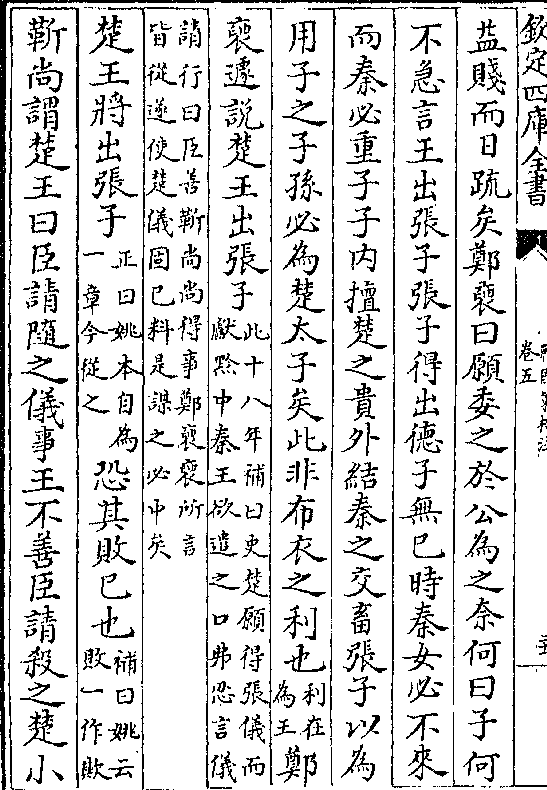 欽定四庫全書
卷五
益賤而日疏矣鄭裦曰願委之於公為之奈何曰子何
不急言王出張子張子得出德子無已時秦女必不來
而秦必重子子内擅楚之貴外結秦之交畜張子以為
用子之子孫必為楚太子矣此非布衣之利也利在為王鄭
裦遽說楚王出張子此十八年補曰史楚願得張儀而獻黔中秦王欲遣之口弗忍言儀
請行曰臣善靳尚尚得事鄭裦裦所言皆從遂使楚儀固已料是謀之必中矣
楚王將出張子正曰姚本自為一章今從之恐其敗已也補曰姚云敗一作欺
靳尚謂楚王曰臣請隨之儀事王不善臣請殺之楚小